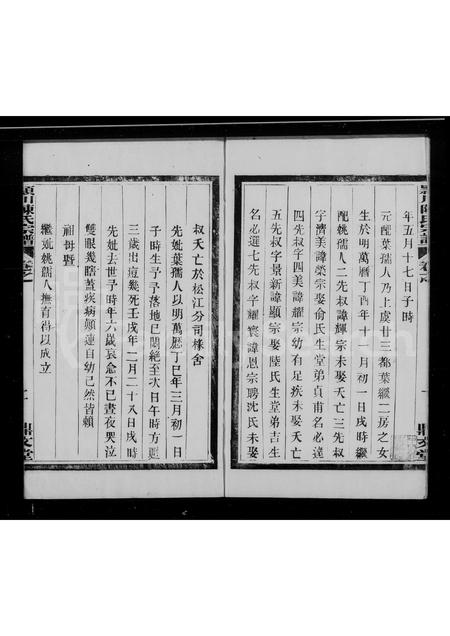 潁川陳氏宗譜
鼎文堂
年五月十七日子時
元配葉孺人乃上虞廿三都葉繼二房之女
生於明萬曆丁酉年十一月初一日戌時繼
配姚孺人二先叔諱輝宗未娶夭亡三先叔
字濟美諱榮宗娶俞氏生堂弟貞甫名必達
四先叔字四美諱耀宗幼有足疾未娶夭亡
五先叔字景新諱顯宗娶陸氏生堂弟吉生
名必選七先叔字耀寰諱恩宗聘沈氏未娶
叔夭亡於松江分司椽舍
先妣葉孺人以明萬曆丁巳年三月初一日
子時生予予落地已悶絕至次日午時方甦
三歲出痘幾死壬戌年二月二十八日戌時
先妣去世予時年六歲哀念不已晝夜哭泣
雙眼幾瞎蓋疾病顛連自幼已然皆賴
祖母暨
繼妣姚孺人撫育得以成立
潁川陳氏宗譜
鼎文堂